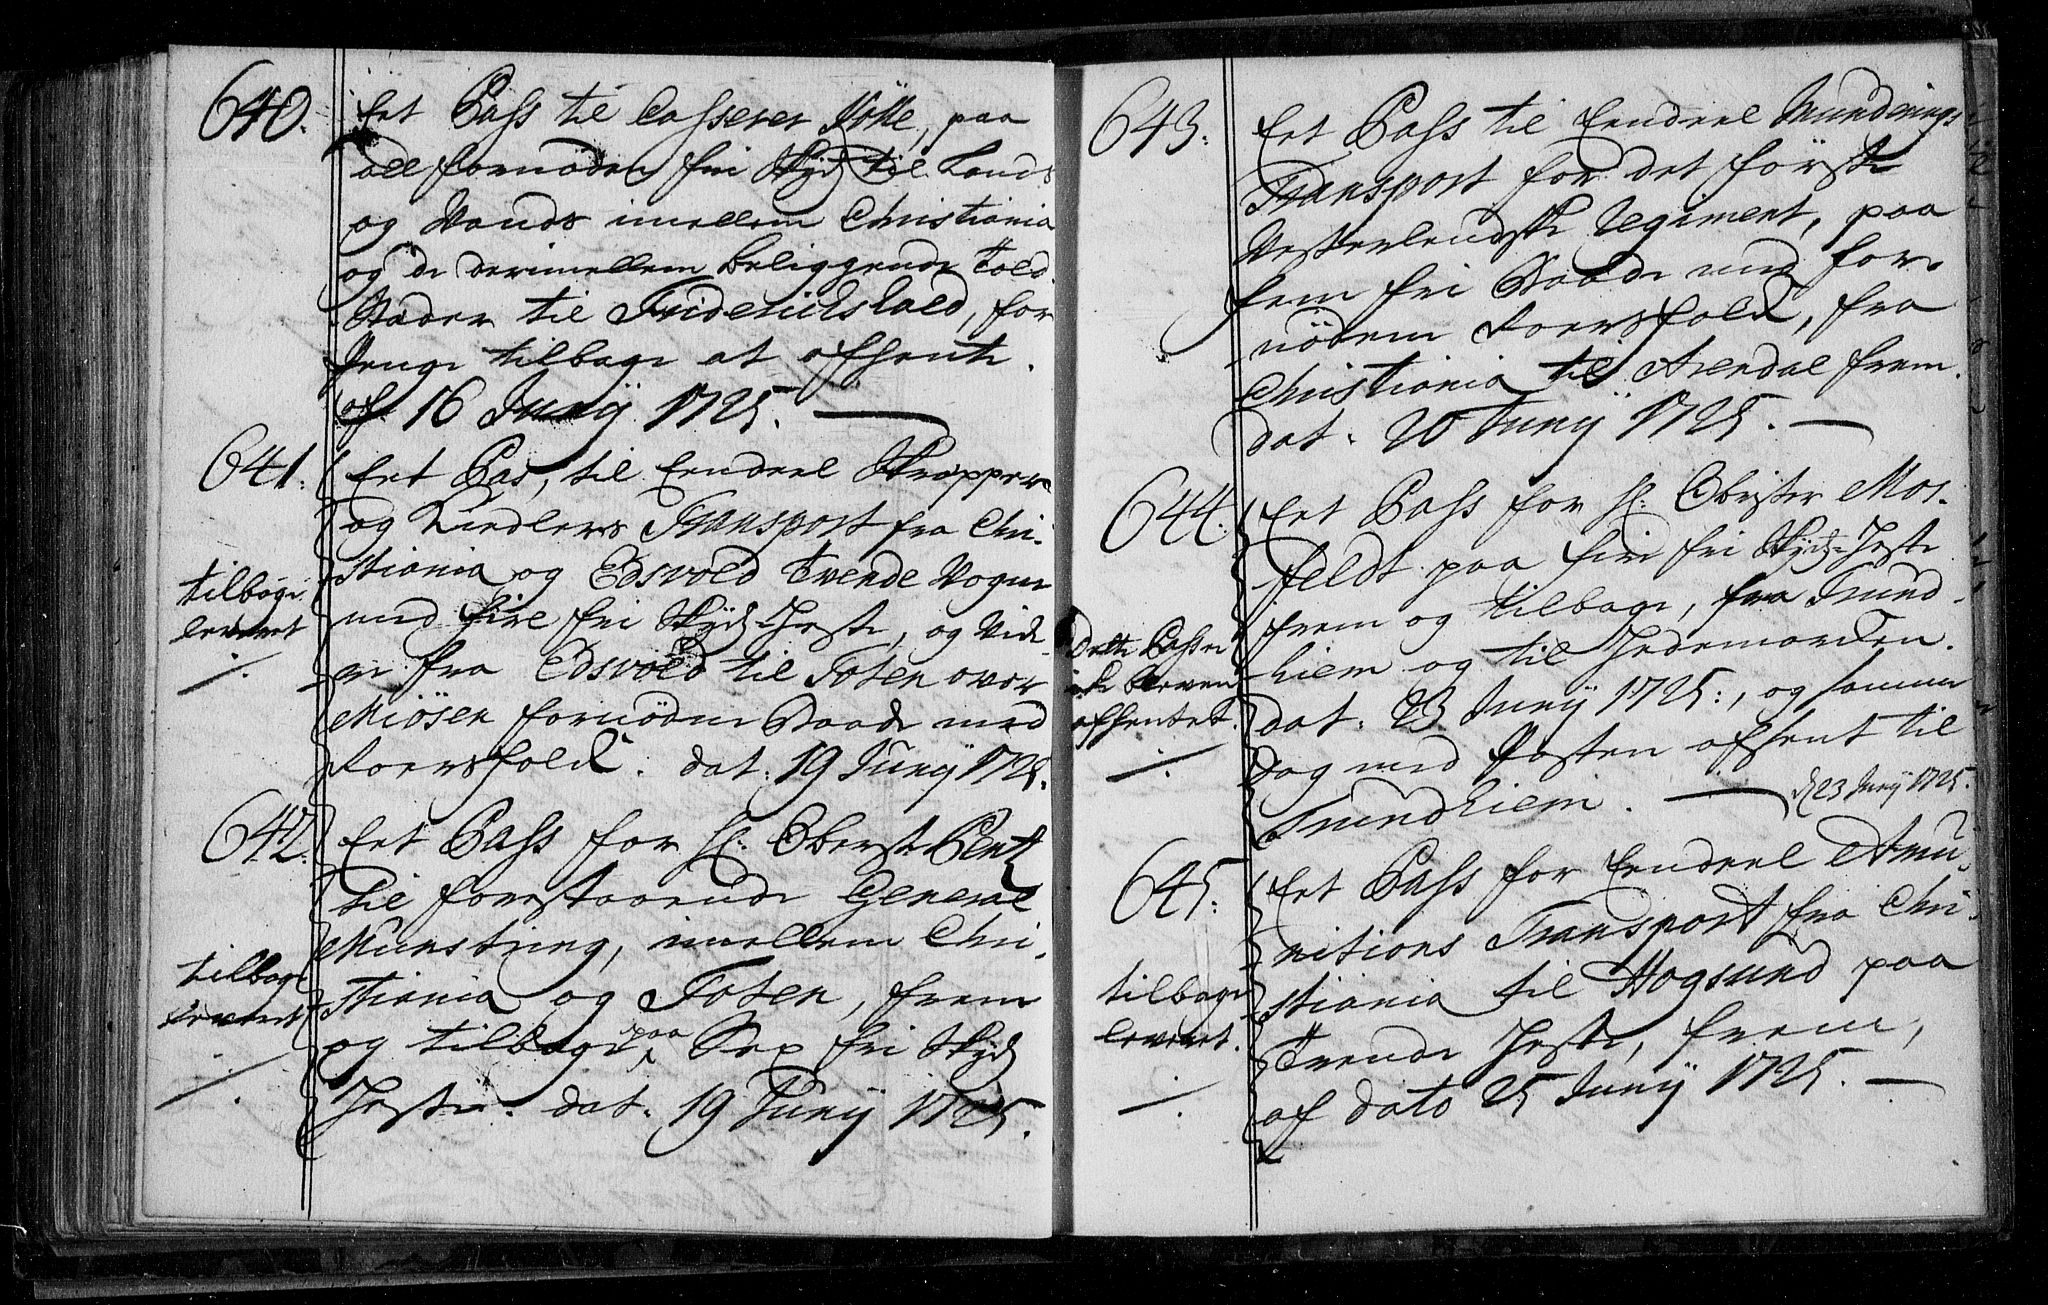 640.
Eet Pass til Casserer Mölle, paa
all fornöden fri Skyds til Lands
og Vands imellem Christiania
og de derimellem beliggende Told
Stæder til Friderichshald, for
Penge tilbage at afhente.
af 16 Junij 1725.
641.
Eet Pas, til Eendeel
og Kiedlers Transport fra Chri-
stiania og Edsvold Tvende Vogne
med fire fri Skyds Heste, og vide-
re fra Edsvold til Toten over
Miösen fornöden Baade med
Roersfolk. dat: 19 Junij 1725.
tilbage
leveret
./.
642.
Eet Pass for H: Oberst Bentz
til forestaaende General
Munstring, imellem Chri-
stiania og Toten, frem
og tilbage paa Sex fri Skyds
Heste. dat: 19 Junij 1725.
tilbage
leveret
./.
643.
Eet Pass til Eendeel Mundering
Transport for det förste
Vesterlendske Regiment, paa
fem fri Baade med for-
nöden Roersfolk, fra
Christiania til Arendal frem.
dat. 20 Junij 1725.
644.
Eet Pass for H: Obrister Mos-
feldt paa fire fri Skyds Heste
frem og tilbage, fra Trund-
hiem og til Hedemarcken.
dat: 23 Junij 1725:, og samme
Dag med Posten afsent til
Trundhiem. d 23 Junij 1725.
Dette Pass er
icke bleven
afhentet.
./.
645.
Eet Pass for Eendeel Amu-
nitions Transport fra Chri-
stiania til Hogsund paa
Tvende Heste, frem,
af dato 25 Junij 1725.
tilbage
leveret.
./.